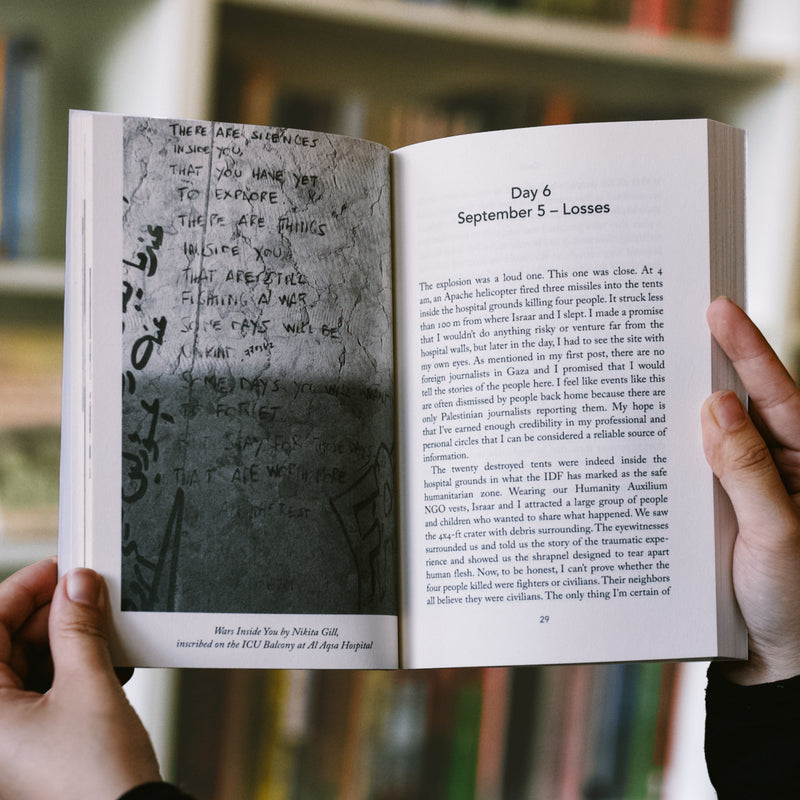 THERE ARE SILENCES
INSIDE YOU,
THAT YOU HAVE YET
TO EXPLORE
THERE ARE THINGS
INSIDE YOU
THAT ARE STILL
FIGHTING A WAR
SOME DAYS WILL BE
UNKIND
SOME DAYS YOU WILL WANT
TO FORGET
BUT STAY FOR
THAT ARE WORTH
THE REST
Wars Inside You by Nikita Gill,
inscribed on the ICU Balcony at Al Aqsa Hospital
Day 6
September 5 – Losses
The explosion was a loud one. This one was close. At 4
am, an Apache helicopter fired three missiles into the tents
inside the hospital grounds killing four people. It struck less
than 100 m from where Israar and I slept. I made a promise
that I wouldn't do anything risky or venture far from the
hospital walls, but later in the day, I had to see the site with
my own eyes. As mentioned in my first post, there are no
foreign journalists in Gaza and I promised that I would
tell the stories of the people here. I feel like events like this
are often dismissed by people back home because there are
only Palestinian journalists reporting them. My hope is
that I've earned enough credibility in my professional and
personal circles that I can be considered a reliable source of
information.
The twenty destroyed tents were indeed inside the
hospital grounds in what the IDF has marked as the safe
humanitarian zone. Wearing our Humanity Auxilium
NGO vests, Israar and I attracted a large group of people
and children who wanted to share what happened. We saw
the 4x4-ft crater with debris surrounding. The eyewitnesses
surrounded us and told us the story of the traumatic expe-
rience and showed us the shrapnel designed to tear apart
human flesh. Now, to be honest, I can't prove whether the
four people killed were fighters or civilians. Their neighbors
all believe they were civilians. The only thing I'm certain of
29